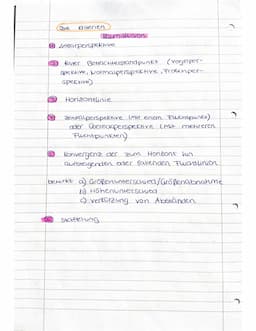 Die Kriterien
Raumillusion
① Linearperspektive
② fixer Betrachterstandpunkt (Vogelper-
spektive, Normalperspektive, Froschper-
spektive)
③ Horizontlinie
④ Zentralperspektive (Mit einem Fluchtpunkt)
oder Übereckperspektive (Mit mehreren
Fluchtpunkten)
⑤ Konvergenz der zum Horizont hin
aufsteigenden oder fallenden Fluchtlinien
bewirkt a) Größenunterschied/Größenabnahme
b) Höhenunterschied
c) Verkürzung von Abständen
Staffelung